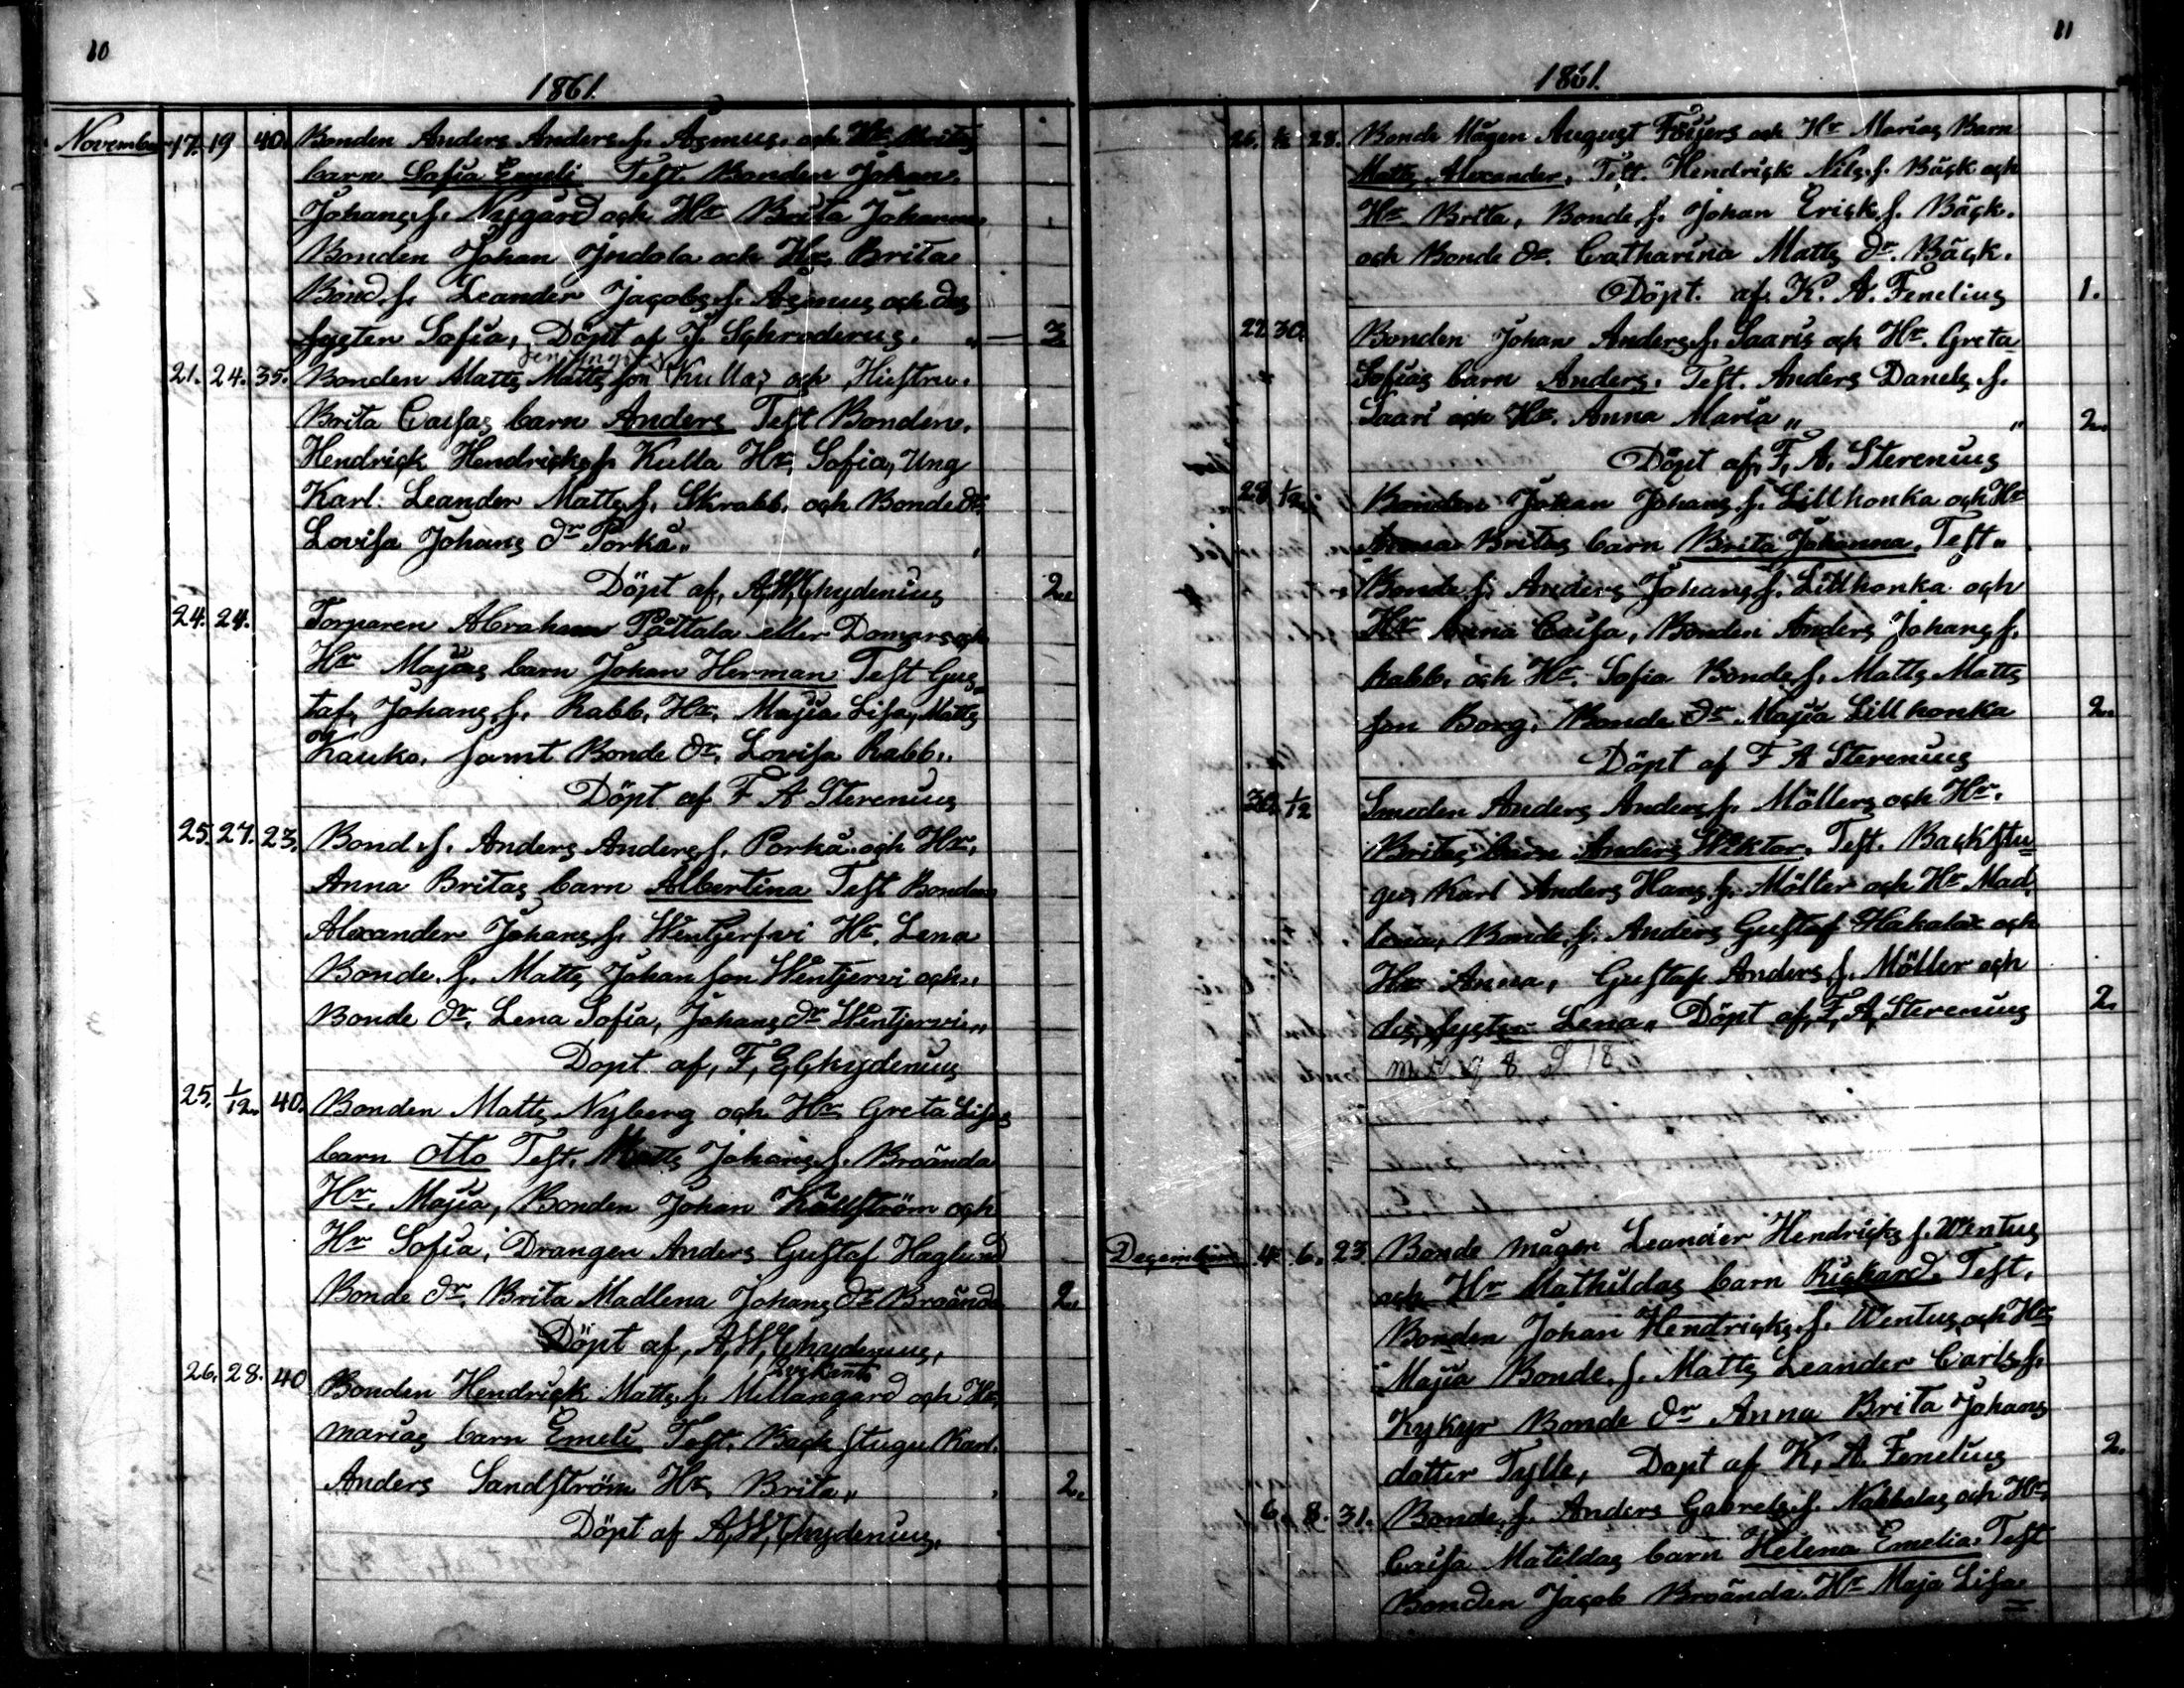 10
1861.
November 17. 19 40. Bonden Anders Anders.f. Asmus, och Hr Britas
barn Sofia Emeli Test. Bonden Johan
Johans.f. Nygård och Hr Brita Johanna
Bonden Johan Jndola och Hr. Brita
Bond.f. Leander Jacobs.f. Asmus och des
syster Sofia, Döpt af J. Schroderus. 3
den yngres
21. 24. 35. Bonden Matts Matts son Kullas och Hustru.
Brita Caisas barn Anders Test Bonden.
Hendrick Hendricks.f. Kulla Hr. Sofia, Ung
Karl. Leander Matts.f. Skrabb. och Bonde dr.
Lovisa Johans dr Porkå„
Döpt af, A,W,Chydenius 2.
24. 24. Torparen Abraham Påttala eller Domars och
Hr Majas barn Johan Herman Test Gus=
taf, Johans.f. Rabb. Hr. Maja Lisa, Matts
Kauko, samt Bonde dr. Lovisa Rabb.
Döpt af F A Sterenius
25. 27. 23. Bond.f. Anders Anders.f. Porkå. och Hr.
Anna Britas barn Albertina Test Bonden
Alexander Johans.f. Wentjerfvi Hr. Lena
Bonde.f. Matts Johan son Wentjervi och
Bonde dr. Lena Sofia, Johans dr Wentjervi„
Dopt af, F, E, Chydenius
25. 1/12. 40. Bonden Matts Nyberg och Hr Greta Lisas
barn Otto Test. Matts Johans.f. Broända
Hr. Maja, Bonden Johan Källström och
Hr Sofia, Drangen Anders Gustaf Haglund
Bonde dr. Brita Madlena Johans dr Broända 2.
Döpt af, A,W,Chydenius,
26. 28. 40 Bonden Hendrick Matts.f. Mellangard och Hr
Marias barn Emeli Test. Back stugu Karl.
Anders Sandström Hr. Brita„ 2.
Döpt af A,W,Chydenius,
11
1861.
26. 1/12 28. Bonde Mågen August Föijers och Hr Marias Barn
Matts Alexander, Test. Hendrick Nils.f. Bäck och
Hr Brita, Bonde.f. Johan Erick.f. Bäck.
och Bonde dr. Catharina Matts dr. Bäck.
Döpt. af K. A. Fenelius 1.
22 30. Bonden Johan Anders.f. Saaris och Hr. Greta
Sofias barn Anders. Test. Anders Danels.f.
Saari och Hr. Anna Maria „ „ 2.
Döpt af, F, A, Sterenius
28. 1/12 Bonden Johan Johans.f. Lillhonka och Hr
Anna Britas barn Brita Johanna, Test„
Bonde.f. Anders Johans.f. Lillhonka och
Hr Anna Caisa, Bonden Anders Johans.f.
Rabb. och Hr. Sofia Bonde.f. Matts Matts
son Borg. Bonde dr Maja Lillhonka 2.
Döpt af F A Sterenius
30. 1/12 Smeden Anders Anders.f. Möllers och Hr.
Britas barn Anders Wiktor. Test. Backstu=
gu, Karl Anders Hans.f. Möller och Hr Mad
lena, Bonde.f. Anders Gustaf Hakala och
Hr Anna, Gustaf Anders.f. Möller och
des syster Lena„ Döpt af, F, A, Sterenius 2.
December 4. 6. 23. Bonde mågen Leander Hendricks.f. Wentus
och Hr Mathildas barn Rickard. Test.
Bonden Johan Hendricks.f. Wentus och Hr
Maja Bonde.f. Matts Leander Carls.f.
Kykyr Bonde dr Anna Brita Johans
datter Tylle, Dopt af K, A. Fenelius 2.
6. 8. 31. Bonde.f. Anders Gabrels.f. Nabbelas och Hr.
Caisa Matildas barn Helena Emelia. Test
Bonden Jacob Broända. Hr Maja Lisa